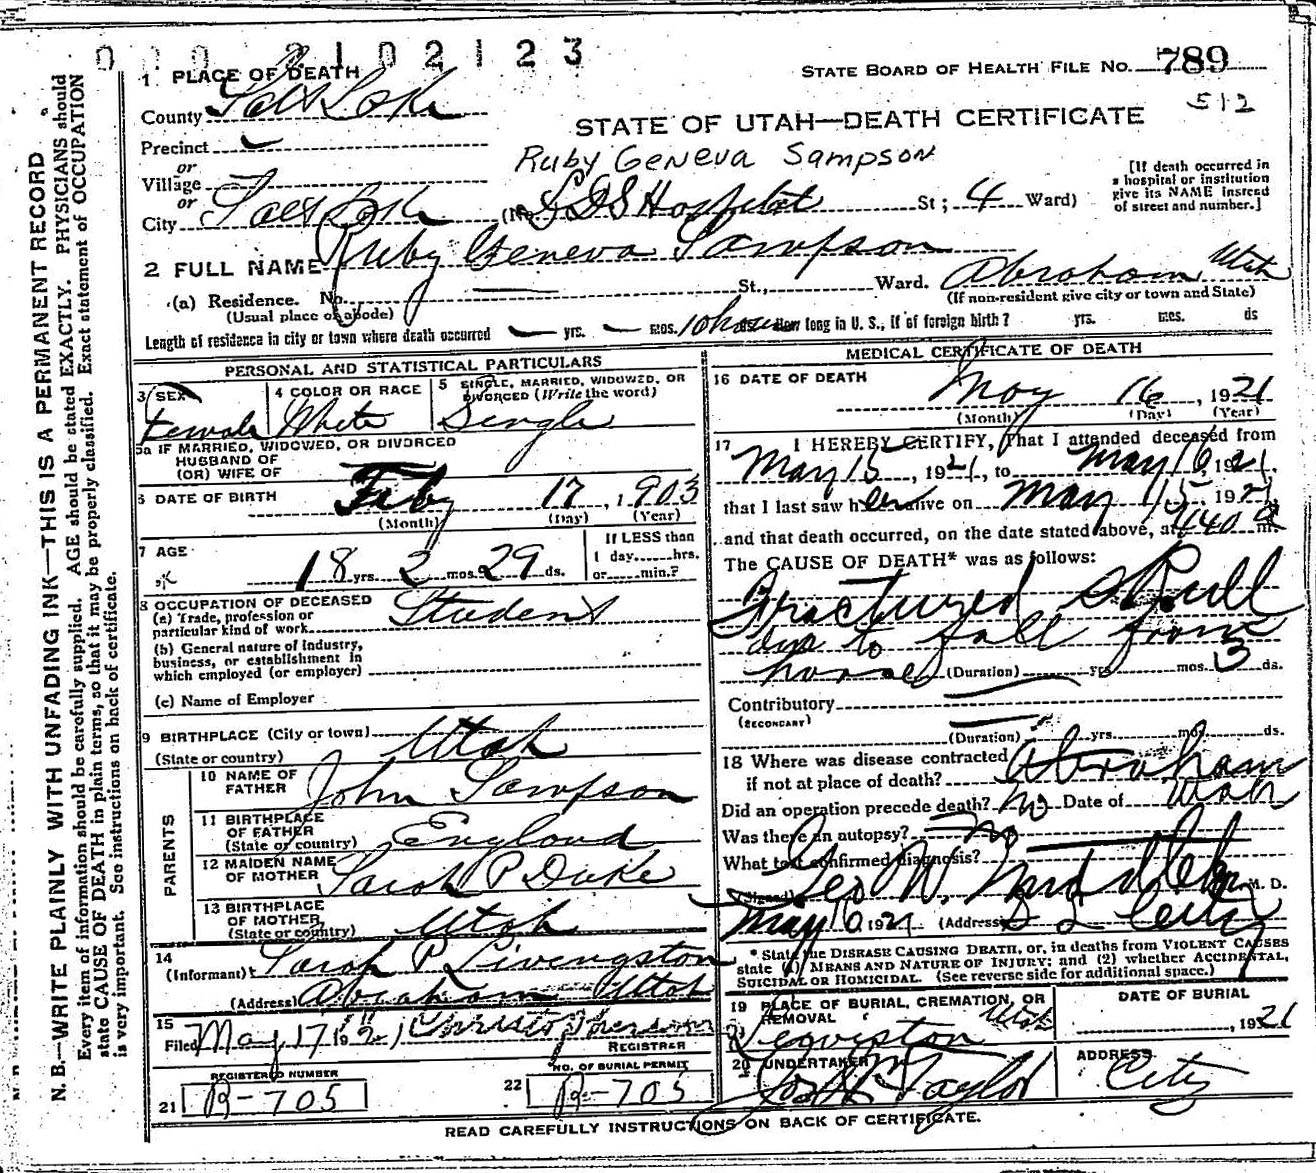 0 0 0 2 1 0 2 1 2 3
STATE BOARD OF HEALTH FILE NO. 789
512
1 PLACE OF DEATH
County Salt Lake
STATE OF UTAH—DEATH CERTIFICATE
Precinct
Ruby Geneva Sampson
or
Village
or
City Salt Lake (No. LDS Hospital St; 4 Ward)
[If death occurred in
a hospital or institution
give its NAME instead
of street and number.]
2 FULL NAME Ruby Geneva Sampson
(a) Residence. No. St., Ward. Abraham Utah
(Usual place of abode) (If non-resident give city or town and State)
Length of residence in city or town where death occurred — yrs. — mos. 10 hours How long in U. S., if of foreign birth? yrs. mos. ds
PERSONAL AND STATISTICAL PARTICULARS
3 SEX Female
4 COLOR OR RACE White
5 SINGLE, MARRIED, WIDOWED, OR
DIVORCED (Write the word)
Single
5a IF MARRIED, WIDOWED, OR DIVORCED
HUSBAND OF
(OR) WIFE OF
6 DATE OF BIRTH Feby 17, 1903
(Month) (Day) (Year)
7 AGE 18 yrs. 2 mos. 29 ds.
If LESS than
1 day......hrs.
or......min.?
8 OCCUPATION OF DECEASED
(a) Trade, profession or
particular kind of work Student
(b) General nature of Industry,
business, or establishment in
which employed (or employer)
(c) Name of Employer
9 BIRTHPLACE (City or town)
(State or country) Utah
PARENTS
10 NAME OF
FATHER John Sampson
11 BIRTHPLACE
OF FATHER
(State or country) England
12 MAIDEN NAME
OF MOTHER Sarah P Duke
13 BIRTHPLACE
OF MOTHER
(State or country) Utah
14
(Informant) Sarah P Livingston
(Address) Abraham Utah
15
Filed May 17 1921
REGISTRAR
REGISTERED NUMBER
21 R-705
NO. OF BURIAL PERMIT
22 R-705
MEDICAL CERTIFICATE OF DEATH
16 DATE OF DEATH
May 16, 1921
(Month) (Day) (Year)
17 I HEREBY CERTIFY, That I attended deceased from
May 15, 1921, to May 16, 1921,
that I last saw her alive on May 15 1921,
and that death occurred, on the date stated above, at 440 a m.
The CAUSE OF DEATH* was as follows:
Fractured Skull
due to fall from
horse (Duration) yrs mos. 3 ds.
Contributory
(SECONDARY)
(Duration) yrs. mos. ds.
18 Where was disease contracted
if not at place of death? Abraham Utah
Did an operation precede death? No Date of
Was there an autopsy? No
What test confirmed diagnosis?
(Signed) Geo W. M. D.
May 16 1921 (Address) S L City
* State the DISEASE CAUSING DEATH, or, in deaths from VIOLENT CAUSES
state (1) MEANS AND NATURE OF INJURY; and (2) whether ACCIDENTAL,
SUICIDAL OR HOMICIDAL. (See reverse side for additional space.)
19 PLACE OF BURIAL, CREMATION, OR
REMOVAL Utah
DATE OF BURIAL
, 1921
20 UNDERTAKER Taylor
ADDRESS
City
READ CAREFULLY INSTRUCTIONS ON BACK OF CERTIFICATE.
N. B.—WRITE PLAINLY WITH UNFADING INK—THIS IS A PERMANENT RECORD
Every item of information should be carefully supplied. AGE should be stated EXACTLY. PHYSICIANS should
state CAUSE OF DEATH in plain terms, so that it may be properly classified. Exact statement of OCCUPATION
is very important. See instructions on back of certificate.